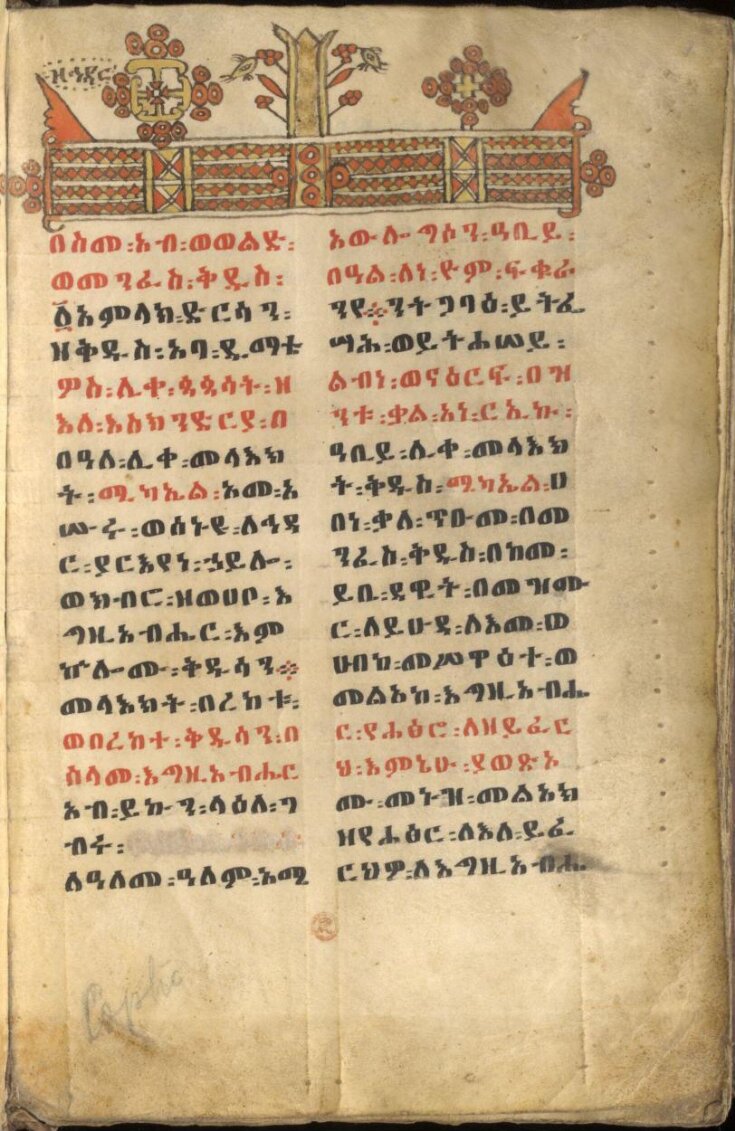 ዘኅዳር
በስመ፡አብ፡ወወልድ፡
ወመንፈስ፡ቅዱስ፡
፩አምላክ፡ድርሳን፡
ዘቅዱስ፡አባ፡ዲማቴ
ዎስ፡ሊቀ፡ጳጳሳት፡ዘ
እለ፡እስክንድርያ፡በ
በዓለ፡ሊቀ፡መላእክ
ት፡ሚካኤል፡አመ፡አ
ሡሩ፡ወሰኑዩ፡ለኅዳ
ር፡ያርእየነ፡ኃይሎ፡
ወክብሮ፡ዘወሀቦ፡እ
ግዚአብሔር፡እም
ኵሎሙ፡ቅዱሳን፡
መላእክት፡በረከቱ፡
ወበረከተ፡ቅዱሳን፡በ
ስላመ፡እግዚአብሔር
አብ፡ይኩን፡ላዕለ፡ገ
ብሩ፡
ለዓለመ፡ዓለም፡አሜ
አውሎግሶን፡ዓቢይ፡
በዓል፡ለነ፡ዮም፡ፍቁራ
ንየ፡ንትጋባዕ፡ይትፈ
ሣሕ፡ወይትሐሠይ፡
ልብነ፡ወናዕርፍ፡በዝ
ንቱ፡ቃል፡አነ፡ርኢኩ፡
ዓቢይ፡ሊቀ፡መላእክ
ት፡ቅዱስ፡ሚካኤል፡ሀ
በነ፡ቃለ፡ጥዑመ፡በመ
ንፈስ፡ቅዱስ፡በከመ፡
ይቤ፡ዳዊት፡በመዝሙ
ር፡ለይሁዳ፡ለእመ፡ወ
ሀብከ፡መሥዋዕተ፡ወ
መልአከ፡እግዚአብሔ
ር፡የሐፅሮ፡ለዘይፈር
ህ፡እምኔሁ፡ያወጽኦ
ሙ፡መኑዝ፡መልአክ
ዘየሐፅሮ፡ለእለ፡ይፈ
ርህዎ፡ለእግዚአብሔ
Copha